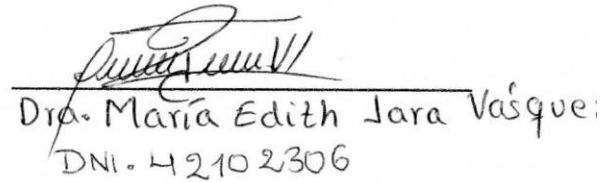 Dra. María Edith Jara Vásquez
DNI. 42102306